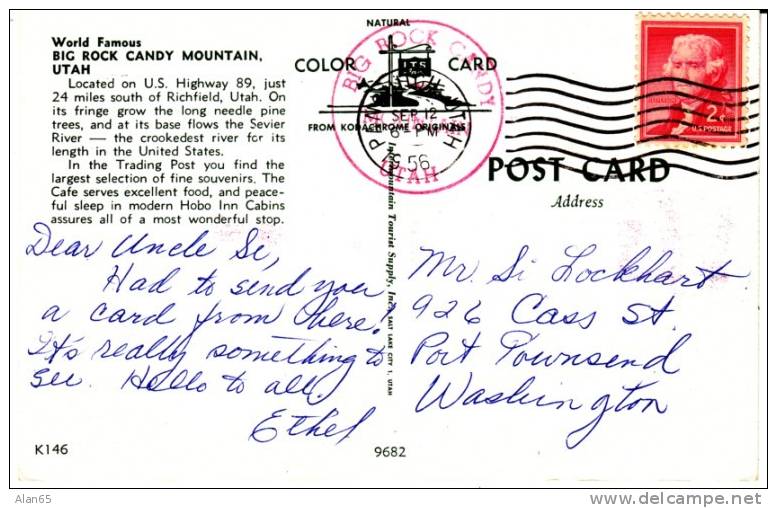 World Famous
BIG ROCK CANDY MOUNTAIN,
UTAH
Located on U.S. Highway 89, just
24 miles south of Richfield, Utah. On
its fringe grow the long needle pine
trees, and at its base flows the Sevier
River — the crookedest river for its
length in the United States.
In the Trading Post you find the
largest selection of fine souvenirs. The
Cafe serves excellent food, and peace-
ful sleep in modern Hobo Inn Cabins
assures all of a most wonderful stop.
NATURAL
COLOR CARD
FROM KODACHROME ORIGINALS
BIG ROCK CANDY
UTAH
SEP 12
6- PM
1956
2¢
U.S. POSTAGE
POST CARD
Address
Dear Uncle Si,
Had to send you
a card from here!
It's really something to
see. Hello to all.
Ethel
Intermountain Tourist Supply, Inc., SALT LAKE CITY 1, UTAH
Mr. Si Lockhart
926 Cass St.
Port Townsend
Washington
K146
9682
Alan65
www.delcampe.net